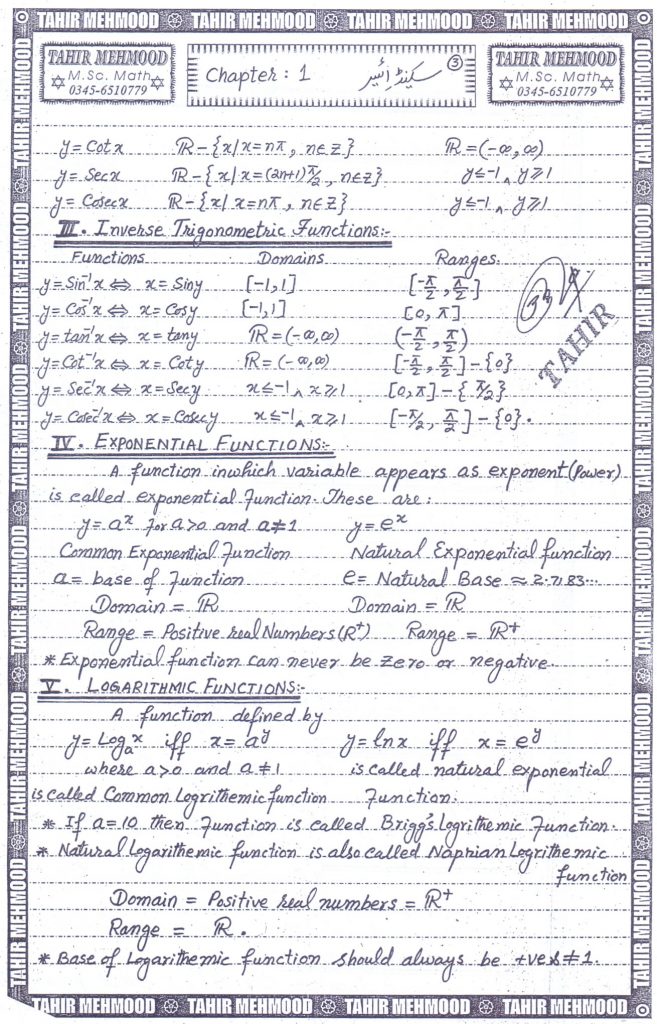 TAHIR MEHMOOD TAHIR MEHMOOD TAHIR MEHMOOD TAHIR MEHMOOD
TAHIR MEHMOOD
M.Sc. Math
0345-6510779
Chapter : 1 سیکنڈ ائیر 3
TAHIR MEHMOOD
M.Sc. Math
0345-6510779
y = Cot x ℝ - {x / x = nπ , n ∈ Z} ℝ = (-∞, ∞)
y = Sec x ℝ - {x / x = (2n+1) π/2 , n ∈ Z} y ≤ -1 ∧ y ≥ 1
y = Cosec x ℝ - {x / x = nπ , n ∈ Z} y ≤ -1 ∧ y ≥ 1
III. Inverse Trigonometric Functions:-
Functions Domains Ranges
y = Sin⁻¹x ⇔ x = Sin y [-1, 1] [-π/2, π/2]
y = Cos⁻¹x ⇔ x = Cos y [-1, 1] [0, π]
y = tan⁻¹x ⇔ x = tan y ℝ = (-∞, ∞) (-π/2, π/2)
y = Cot⁻¹x ⇔ x = Cot y ℝ = (-∞, ∞) [-π/2, π/2] - {0}
y = Sec⁻¹x ⇔ x = Sec y x ≤ -1 ∧ x ≥ 1 [0, π] - {π/2}
y = Cosec⁻¹x ⇔ x = Cosec y x ≤ -1 ∧ x ≥ 1 [-π/2, π/2] - {0}.
TAHIR
IV. EXPONENTIAL FUNCTIONS:-
A function inwhich variable appears as exponent (Power)
is called exponential function. These are:
y = aˣ for a > 0 and a ≠ 1 y = eˣ
Common Exponential Function Natural Exponential function
a = base of Function e = Natural Base ≈ 2.7183...
Domain = ℝ Domain = ℝ
Range = Positive real Numbers (R⁺) Range = ℝ⁺
* Exponential function can never be zero or negative.
V. LOGARITHMIC FUNCTIONS:-
A function defined by
y = Logₐx iff x = aʸ y = ln x iff x = eʸ
where a > 0 and a ≠ 1 is called natural exponential
is called Common Logrithemic function Function.
* If a = 10 then Function is called Brigg's Logrithemic Function.
* Natural Logarithemic function is also called Naprian Logrithemic
function
Domain = Positive real numbers = ℝ⁺
Range = ℝ.
* Base of Logarithemic function should always be +ve & ≠ 1.
TAHIR MEHMOOD TAHIR MEHMOOD TAHIR MEHMOOD TAHIR MEHMOOD